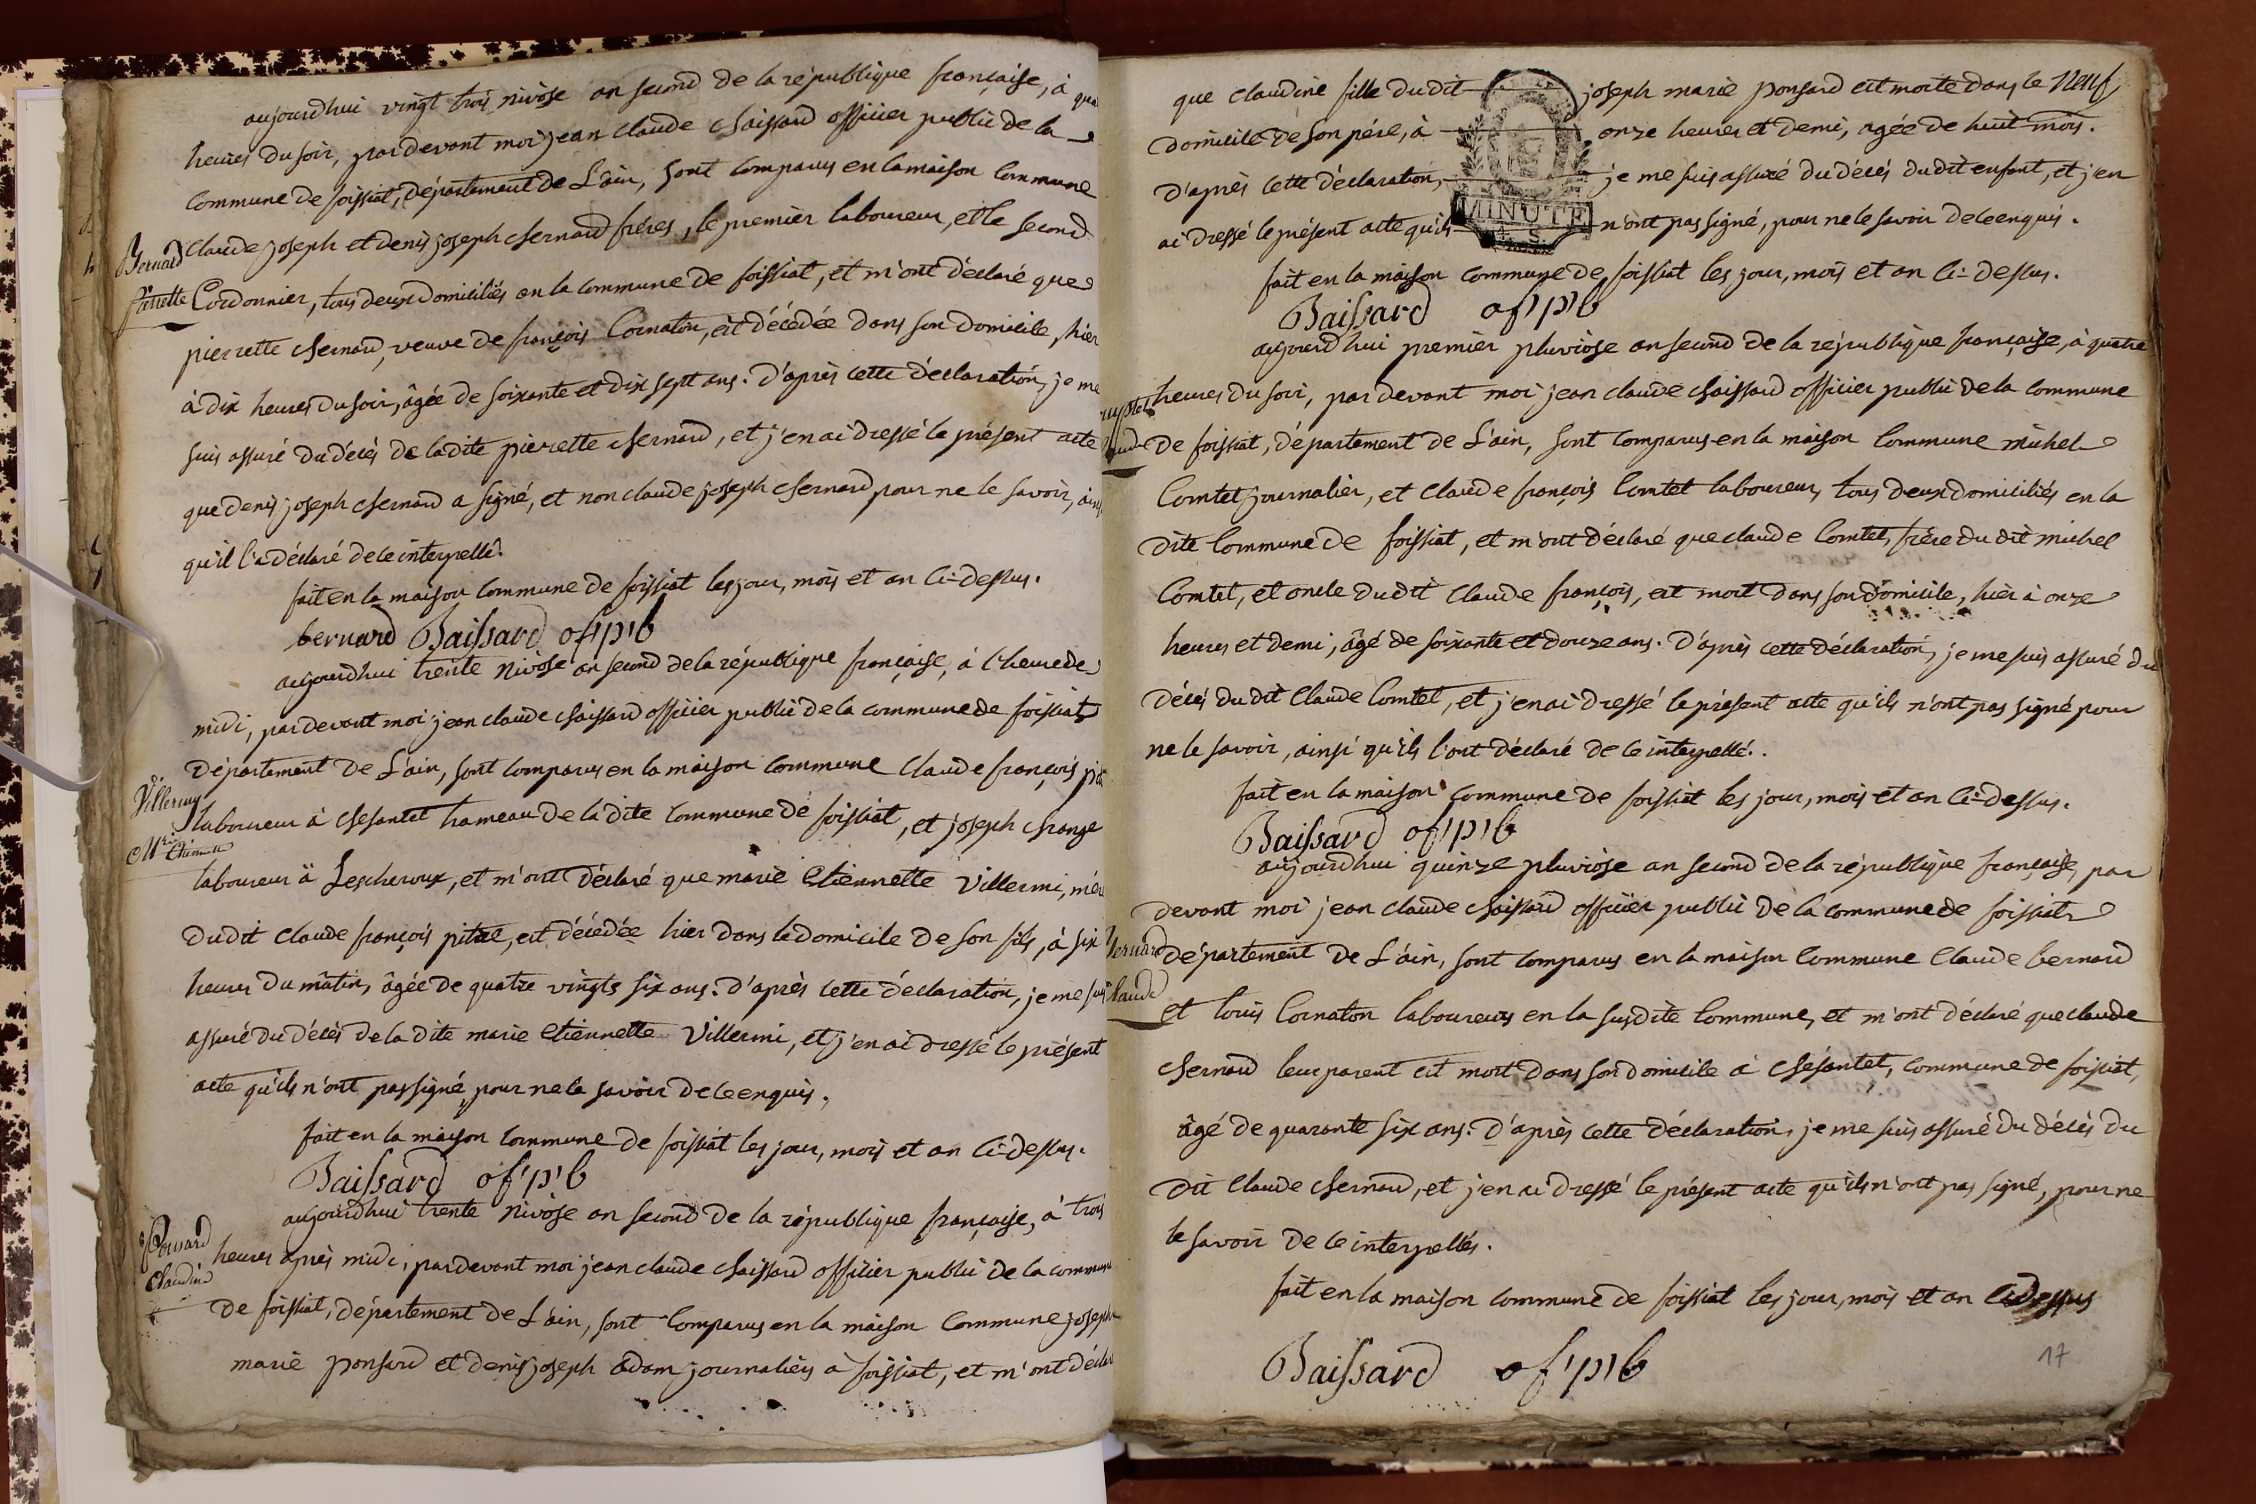 aujourdhui vingt trois nivôse an second de la république françoise, à
heures du soir, pardevant moi jean claude Baissard officier public de la
commune de foissiat, département de L'ain, sont comparus en la maison commune
Bernard
pierrette
Claude joseph et denis joseph Bernard frères, le premier laboureur, et le second
Cordonnier, tous deux domiciliés en la commune de foissiat, et m'ont déclaré que
pierrette Bernard, veuve de françois Cornaton, est décédée dans son domicile, hier
à dix heures du soir, âgée de soixante et dix sept ans. D'après cette déclaration, je me
suis assuré du décés de ladite pierrette Bernard, et j'en ai dressé le présent acte
que denis joseph Bernard a signé, et non claude joseph Bernard pour ne le savoir,
qu'il l'a déclaré de ce interpellé.
fait en la maison commune de foissiat les jour, mois et an Ci-dessus.
bernard Baissard of'p'b
aujourdhui trente Nivôse an second de la république françoise, à l'heure de
midi, pardevant moi jean claude Baissard officier public de la commune de foissiat
Département de L'ain, sont comparus en la maison commune Claude françois
Villermy
M.rie Etiennette
laboureur à Besantet hameau de la dite commune de foissiat, et joseph Brange
laboureur à Lescheroux, et m'ont déclaré que marie Etiennette Villermi,
dudit Claude françois pitre, est décédée hier dans le domicile de son fils, à six
heures du mâtin, âgée de quatre vingts six ans. D'après cette déclaration, je me suis
assuré du décès de la dite marie Etiennette Villermi, et j'en ai dressé le présent
acte qu'ils n'ont pas signé, pour ne le savoir de ce enquis.
fait en la maison commune de foissiat les jour, mois et an Ci-dessus.
Baissard of'p'b
aujourdhui trente Nivôse an second de la république françoise, à trois
Ponsard
Claudine
heures après midi, pardevant moi jean claude Baissard officier public de la commune
de foissiat, département de L'ain, sont comparus en la maison Commune joseph
marie ponsard et denis joseph adam journaliers à foissiat, et m'ont déclaré
que claudine fille dudit joseph marie ponsard est morte dans le Neuf
domicile de son père, à onze heures et demi, agée de huit mois.
D'après cette déclaration, je me suis assuré du décés dudit enfant, et j'en
MINUTE
4. S.
ai dressé le présent acte qu'ils n'ont pas signé, pour ne le savoir de ce enquis.
fait en la maison commune de foissiat les jour, mois et an Ci-dessus.
Baissard of'p'b
aujourdhui premier pluviôse an second de la république françoise, à quatre
heures du soir, par devant moi jean claude Baissard officier public de la commune
de foissiat, département de L'ain, sont comparus en la maison Commune michel
Comtet journalier, et Claude françois Comtet laboureur, tous deux domiciliés en la
dite Commune de foissiat, et m'ont déclaré que claude Comtet, frère du dit michel
Comtet, et oncle du dit Claude françois, est mort dans son domicile, hier à onze
heures et demi, âgé de soixante et douze ans. D'après cette déclaration, je me suis assuré du
décés du dit Claude Comtet, et j'en ai dressé le présent acte qu'ils n'ont pas signé pour
ne le savoir, ainsi qu'ils l'ont déclaré de ce interpellé.
fait en la maison commune de foissiat les jour, mois et an Ci-dessus.
Baissard of'p'b
aujourdhui quinze pluviôse an second de la république françoise, par
devant moi jean claude Baissard officier public de la commune de foissiat
Bernard
Claude
département de L'ain, sont comparus en la maison Commune Claude bernard
et louis Cornaton laboureurs en la susdite Commune, et m'ont déclaré que claude
Bernard leur parent est mort dans son domicile à Besantet, commune de foissiat,
âgé de quarante six ans. D'après cette déclaration, je me suis assuré du décés du
dit Claude Bernard, et j'en ai dressé le présent acte qu'ils n'ont pas signé, pour ne
le savoir de ce interpellés.
fait en la maison commune de foissiat les jour, mois et an Cidessus
Baissard of'p'b
17